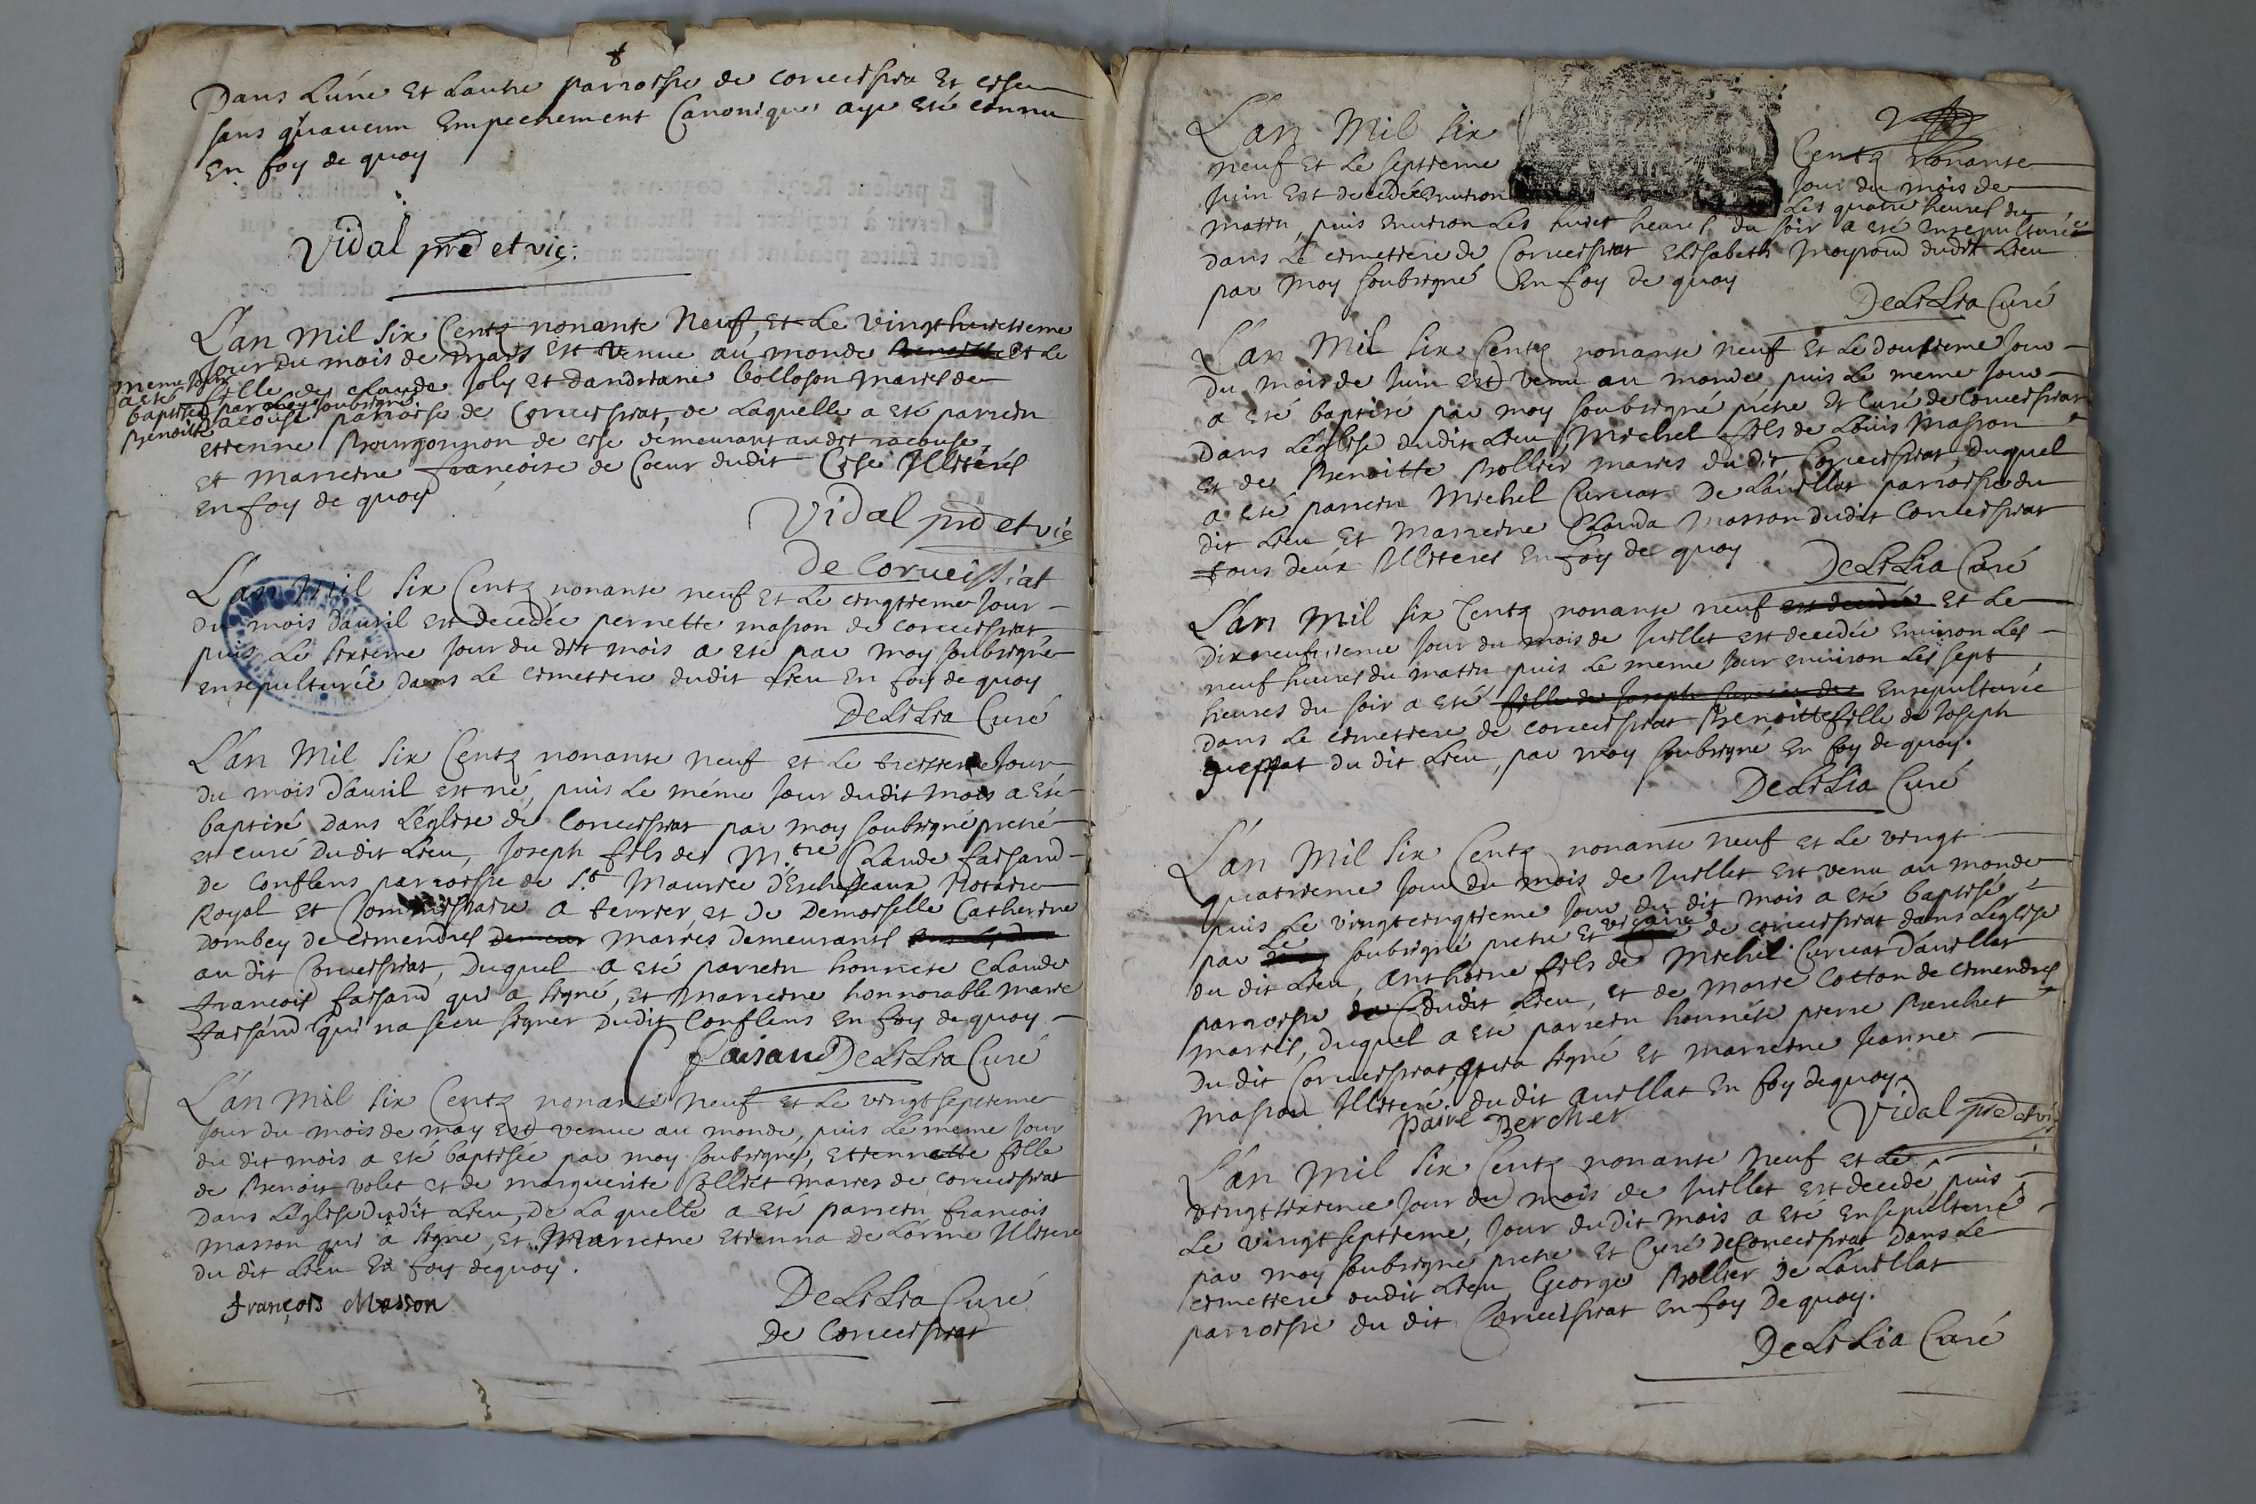 Dans L'une Et Lautre parroisse de corveissiat Et cise
sans qu'aucun Empechement Canonique aye eté connu
En foy de quoy
Vidal pre et vic:
L'an Mil Six Centz nonante Neuf, et Le vingt huictieme
Jour du mois de Mars Est venue au monde et Le
meme Jour a eté baptisée par moy soubsigné Benoitte
fille de Claude Joly Et Dandreane Bolloson mariés de
racouse parroisse de Corveissiat, de Laquelle a eté parrein
Etienne Bourgonnon de cise demeurant audit racouse,
et Marreine françoise de Coeur dudit Cise Illiterés
En foy de quoy
Vidal pre et vic
De Corveissiat
L'an Mil Six Centz nonante neuf Et Le cinqtieme Jour
du mois d'avril est Decedée pernette masson de corveissiat
puis Le sixieme Jour du dit mois a eté par moy soubsigné
ensepulturée dans Le cimetiere dudit Lieu En foy de quoy
DeLiLia Curé
L'an Mil Six Centz nonante neuf et Le treizieme Jour
du mois d'avril est né, puis Le méme Jour dudit mois a eté
baptisé dans L'église de Corveissiat par moy soubsigné pretre
et curé Dudit Lieu, Joseph fils de M.tre Claude faisand
de Conflens parroisse de S.t Maurice d'Escheseaux Notaire
Royal et Commissaire a terrier, et de Demoiselle Catherine
Dombey de Cimendres mariés Demeurants
au dit Corveissiat, Duquel a eté parrein honnete Claude
francois faisand qui a signé, et marreine honnorable marie
faisand qui na sceu signer Dudit Conflens En foy de quoy
faisand DeLiLia Curé
L'an Mil Six Centz nonante neuf et Le vingt septieme
Jour du mois de may est venue au monde, puis Le meme Jour
du dit mois a eté baptisée par moy soubsigné, Etiennette fille
de Benoit volet et de marguerite Colliet mariés de corveissiat
dans L'église Dudit Lieu, De La quelle a eté parrein francois
masson qui a signé, et Marreine Etienna de Lorme Illiterée
du dit Lieu En foy de quoy.
françois Masson
DeLiLia Curé
de Corveissiat
2
L'an Mil Six Centz nonante
neuf Et Le septieme Jour du mois de
Juin Est Decedée environ Les quatre heures du
matin, puis environ Les huict heures du soir a eté Ensepulturée
dans Le cimetiere de Corveissiat Elisabeth Moyroud dudit Lieu
par moy soubsigné En foy de quoy
DeLiLia Curé
L'an Mil Six Centz nonante neuf Et Le douzieme Jour
du mois de Juin est venu au monde, puis Le meme Jour
a eté baptisé par moy soubsigné pretre et Curé de Corveissiat
dans L'église dudit Lieu, Michel fils de Louis Masson
et de Benoitte Bollier mariés du dit Corveissiat, Duquel
a eté parrein Michel Curvat De Lavillat parroisse du
dit Lieu Et Marreine Clauda Masson dudit Corveissiat
tous deux Illiterés En foy de quoy
DeLiLia Curé
L'an Mil Six Centz nonante neuf est decedée Et Le
Dixneufvieme Jour du mois de Juillet est decedée environ Les
neuf heures du matin puis Le meme Jour environ Les sept
heures du soir a eté fille de Joseph Ensepulturée
dans Le cimetiere de corveissiat Benoitte fille de Joseph
gueppat du dit Lieu, par moy soubsigné En foy de quoy.
DeLiLia Curé
L'an Mil Six Centz nonante neuf Et Le vingt
quatrieme Jour du mois de Juillet Est venu au monde
puis Le vingtcinqtieme Jour du dit mois a eté baptisé
par Le soubsigné pretre Et vicaire de corveissiat dans L'église
du dit Lieu, Anthoine fils de Michel Curvat D'avillat
parroisse dudit Lieu, et de Marie Cotton de cimendres
mariés, Duquel a eté parrein honnéte pierre Berchet
Du dit Corveissiat, qui a signé Et marreine Jeanne
masson Illiteré. du dit avillat En foy de quoy.
paire Bercher
Vidal pre et vic
L'an Mil Six Centz nonante neuf Et Le
vingtsixieme Jour du mois de Juillet est decedé, puis
Le vingt septieme, Jour du dit mois a eté Ensepulturé
par moy soubsigné pretre Et Curé de Corveissiat Dans Le
cimetiere dudit Lieu George Bollier de Lavillat
parroisse du dit Corveissiat En foy De quoy.
DeLiLia Curé